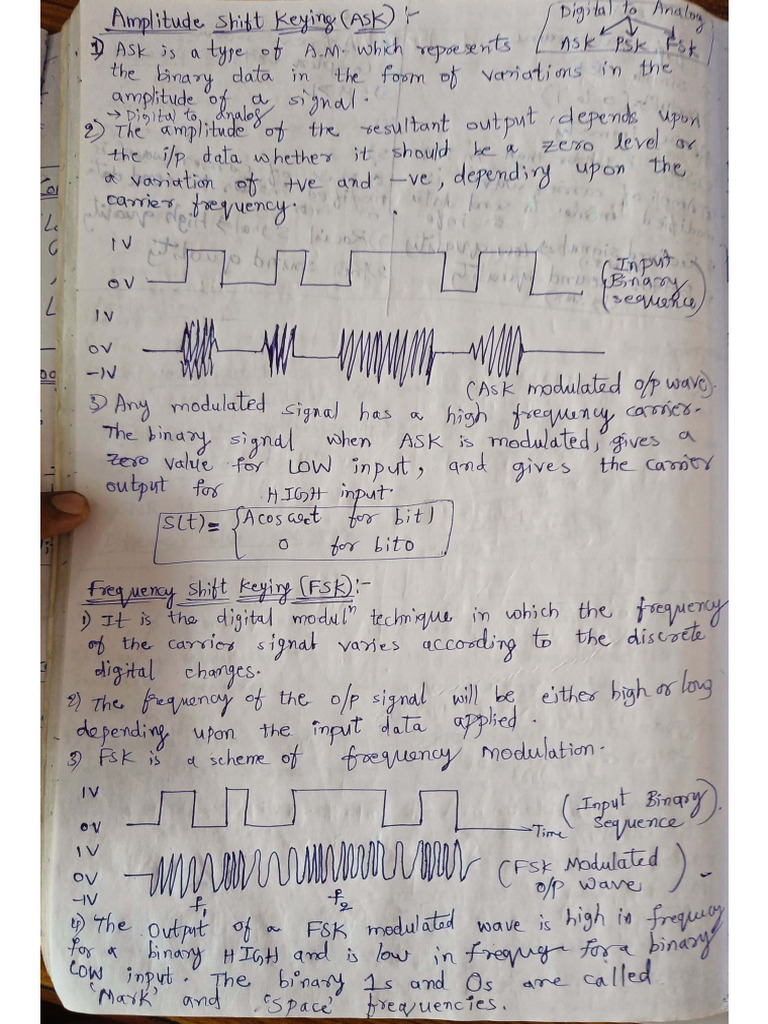 Amplitude Shift Keying (ASK) :-
Digital to Analog
ASK PSK FSK
1) ASK is a type of A.M. which represents
the binary data in the form of variations in the
amplitude of a signal.
→ Digital to analog
2) The amplitude of the resultant output depends upon
the i/p data whether it should be a zero level or
a variation of +ve and -ve, depending upon the
carrier frequency.
1V
0V
(Input
Binary
sequence)
1V
0V
-1V
(ASK modulated o/p wave).
3) Any modulated signal has a high frequency carrier.
The binary signal when ASK is modulated, gives a
zero value for LOW input, and gives the carrier
output for HIGH input.
S(t) = { A cos ωct for bit 1
0 for bit 0
Frequency Shift Keying (FSK) :-
1) It is the digital modulⁿ technique in which the frequency
of the carrier signal varies according to the discrete
digital changes.
2) The frequency of the o/p signal will be either high or long
depending upon the input data applied.
3) FSK is a scheme of frequency modulation.
1V
0V
Time
(Input Binary
Sequence)
1V
0V
-1V
f1 f2
(FSK Modulated
o/p wave)
4) The output of a FSK modulated wave is high in frequency
for a binary HIGH and is low in frequy for a binary
LOW input. The binary 1s and 0s are called
'Mark' and 'Space' frequencies.